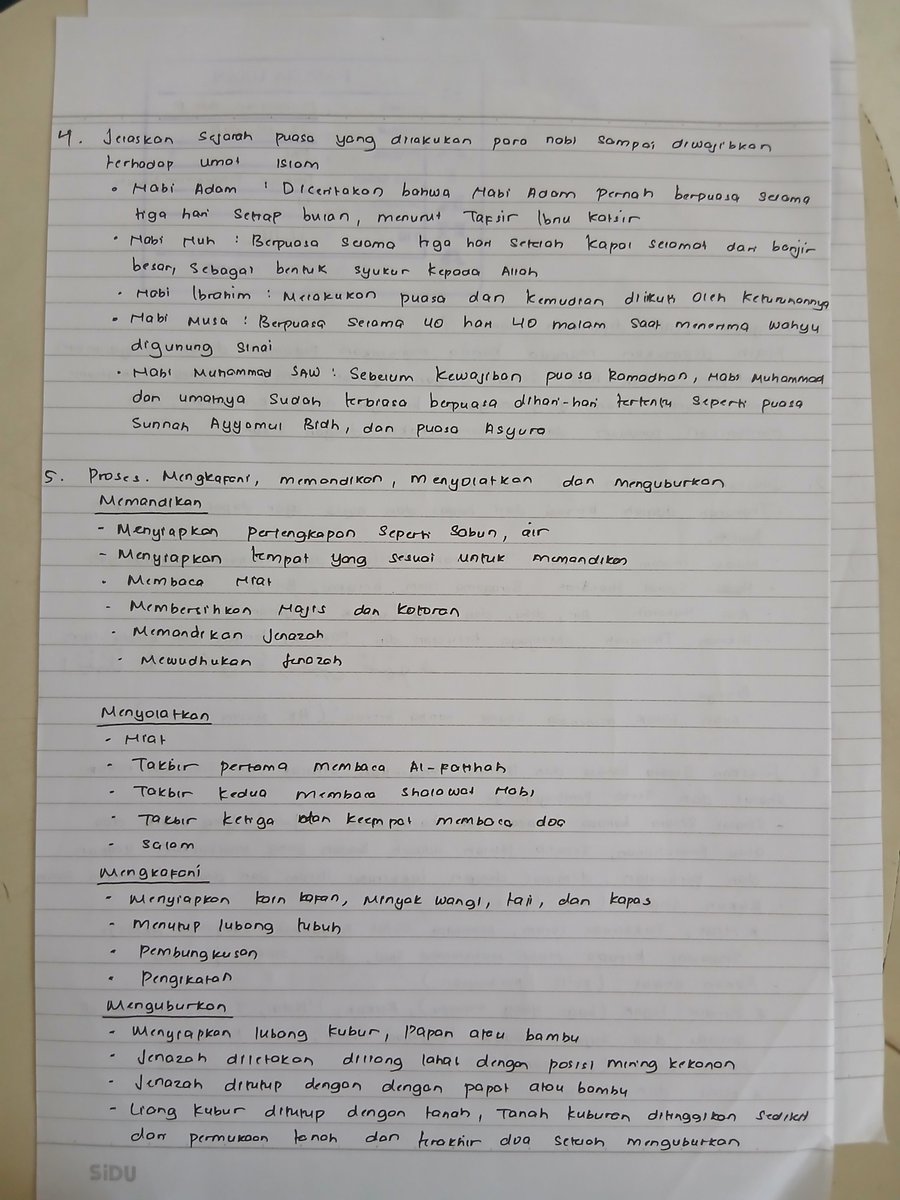 4. Jelaskan Sejarah puasa yang dilakukan para nabi sampai diwajibkan
terhadap umat Islam
• Nabi Adam : Diceritakan bahwa Nabi Adam pernah berpuasa selama
tiga hari setiap bulan, menurut Tafsir Ibnu Katsir
• Nabi Nuh : Berpuasa selama tiga hari setelah kapal selamat dari banjir
besar, sebagai bentuk syukur kepada Allah
• Nabi Ibrahim : Melakukan puasa dan kemudian diikuti oleh keturunannya
• Nabi Musa : Berpuasa selama 40 hari 40 malam saat menerima wahyu
digunung Sinai
• Nabi Muhammad SAW : Sebelum kewajiban puasa Ramadhan, Nabi Muhammad
dan umatnya sudah terbiasa berpuasa dihari-hari tertentu seperti puasa
Sunnah Ayyamul Bidh, dan puasa Asyura
5. Proses. Mengkafani, memandikan, menyolatkan dan menguburkan
Memandikan
- Menyiapkan perlengkapan seperti Sabun, air
- Menyiapkan tempat yang sesuai untuk memandikan
- Membaca Niat
- Membersihkan Najis dan kotoran
- Memandikan Jenazah
- Mewudhukan Jenazah
Menyolatkan
- Niat
- Takbir pertama membaca Al-Fatihah
- Takbir kedua membaca Sholawat Nabi
- Takbir ketiga dan keempat membaca doa
- Salam
Mengkafani
- Menyiapkan kain kafan, Minyak wangi, tali, dan kapas
- Menutup lubang tubuh
- Pembungkusan
- Pengikatan
Menguburkan
- Menyiapkan lubang kubur, Papan atau bambu
- Jenazah diletakan diliang lahat dengan posisi miring kekanan
- Jenazah ditutup dengan dengan papat atau bambu
- Liang kubur ditutup dengan tanah, Tanah kuburan ditinggikan sedikit
dari permukaan tanah dan terakhir doa setelah menguburkan
SiDU